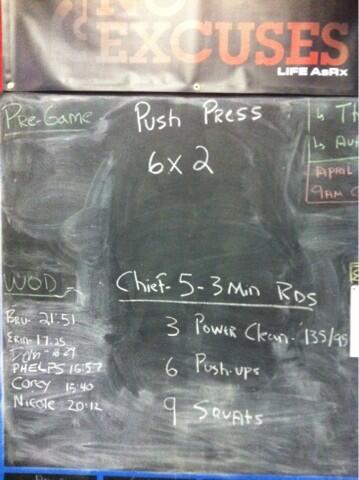 NO
EXCUSES
LIFE AsRx
Pre-Game
Push Press
6x2
APRIL
9AM
WOD
Chief - 5 - 3 Min RDS
3 Power Clean - 135/95
6 Push-ups
9 Squats
Bru- 21:51
Erin- 17:25
PHELPS 15:57
Corey 15:40
Nicole 20:12